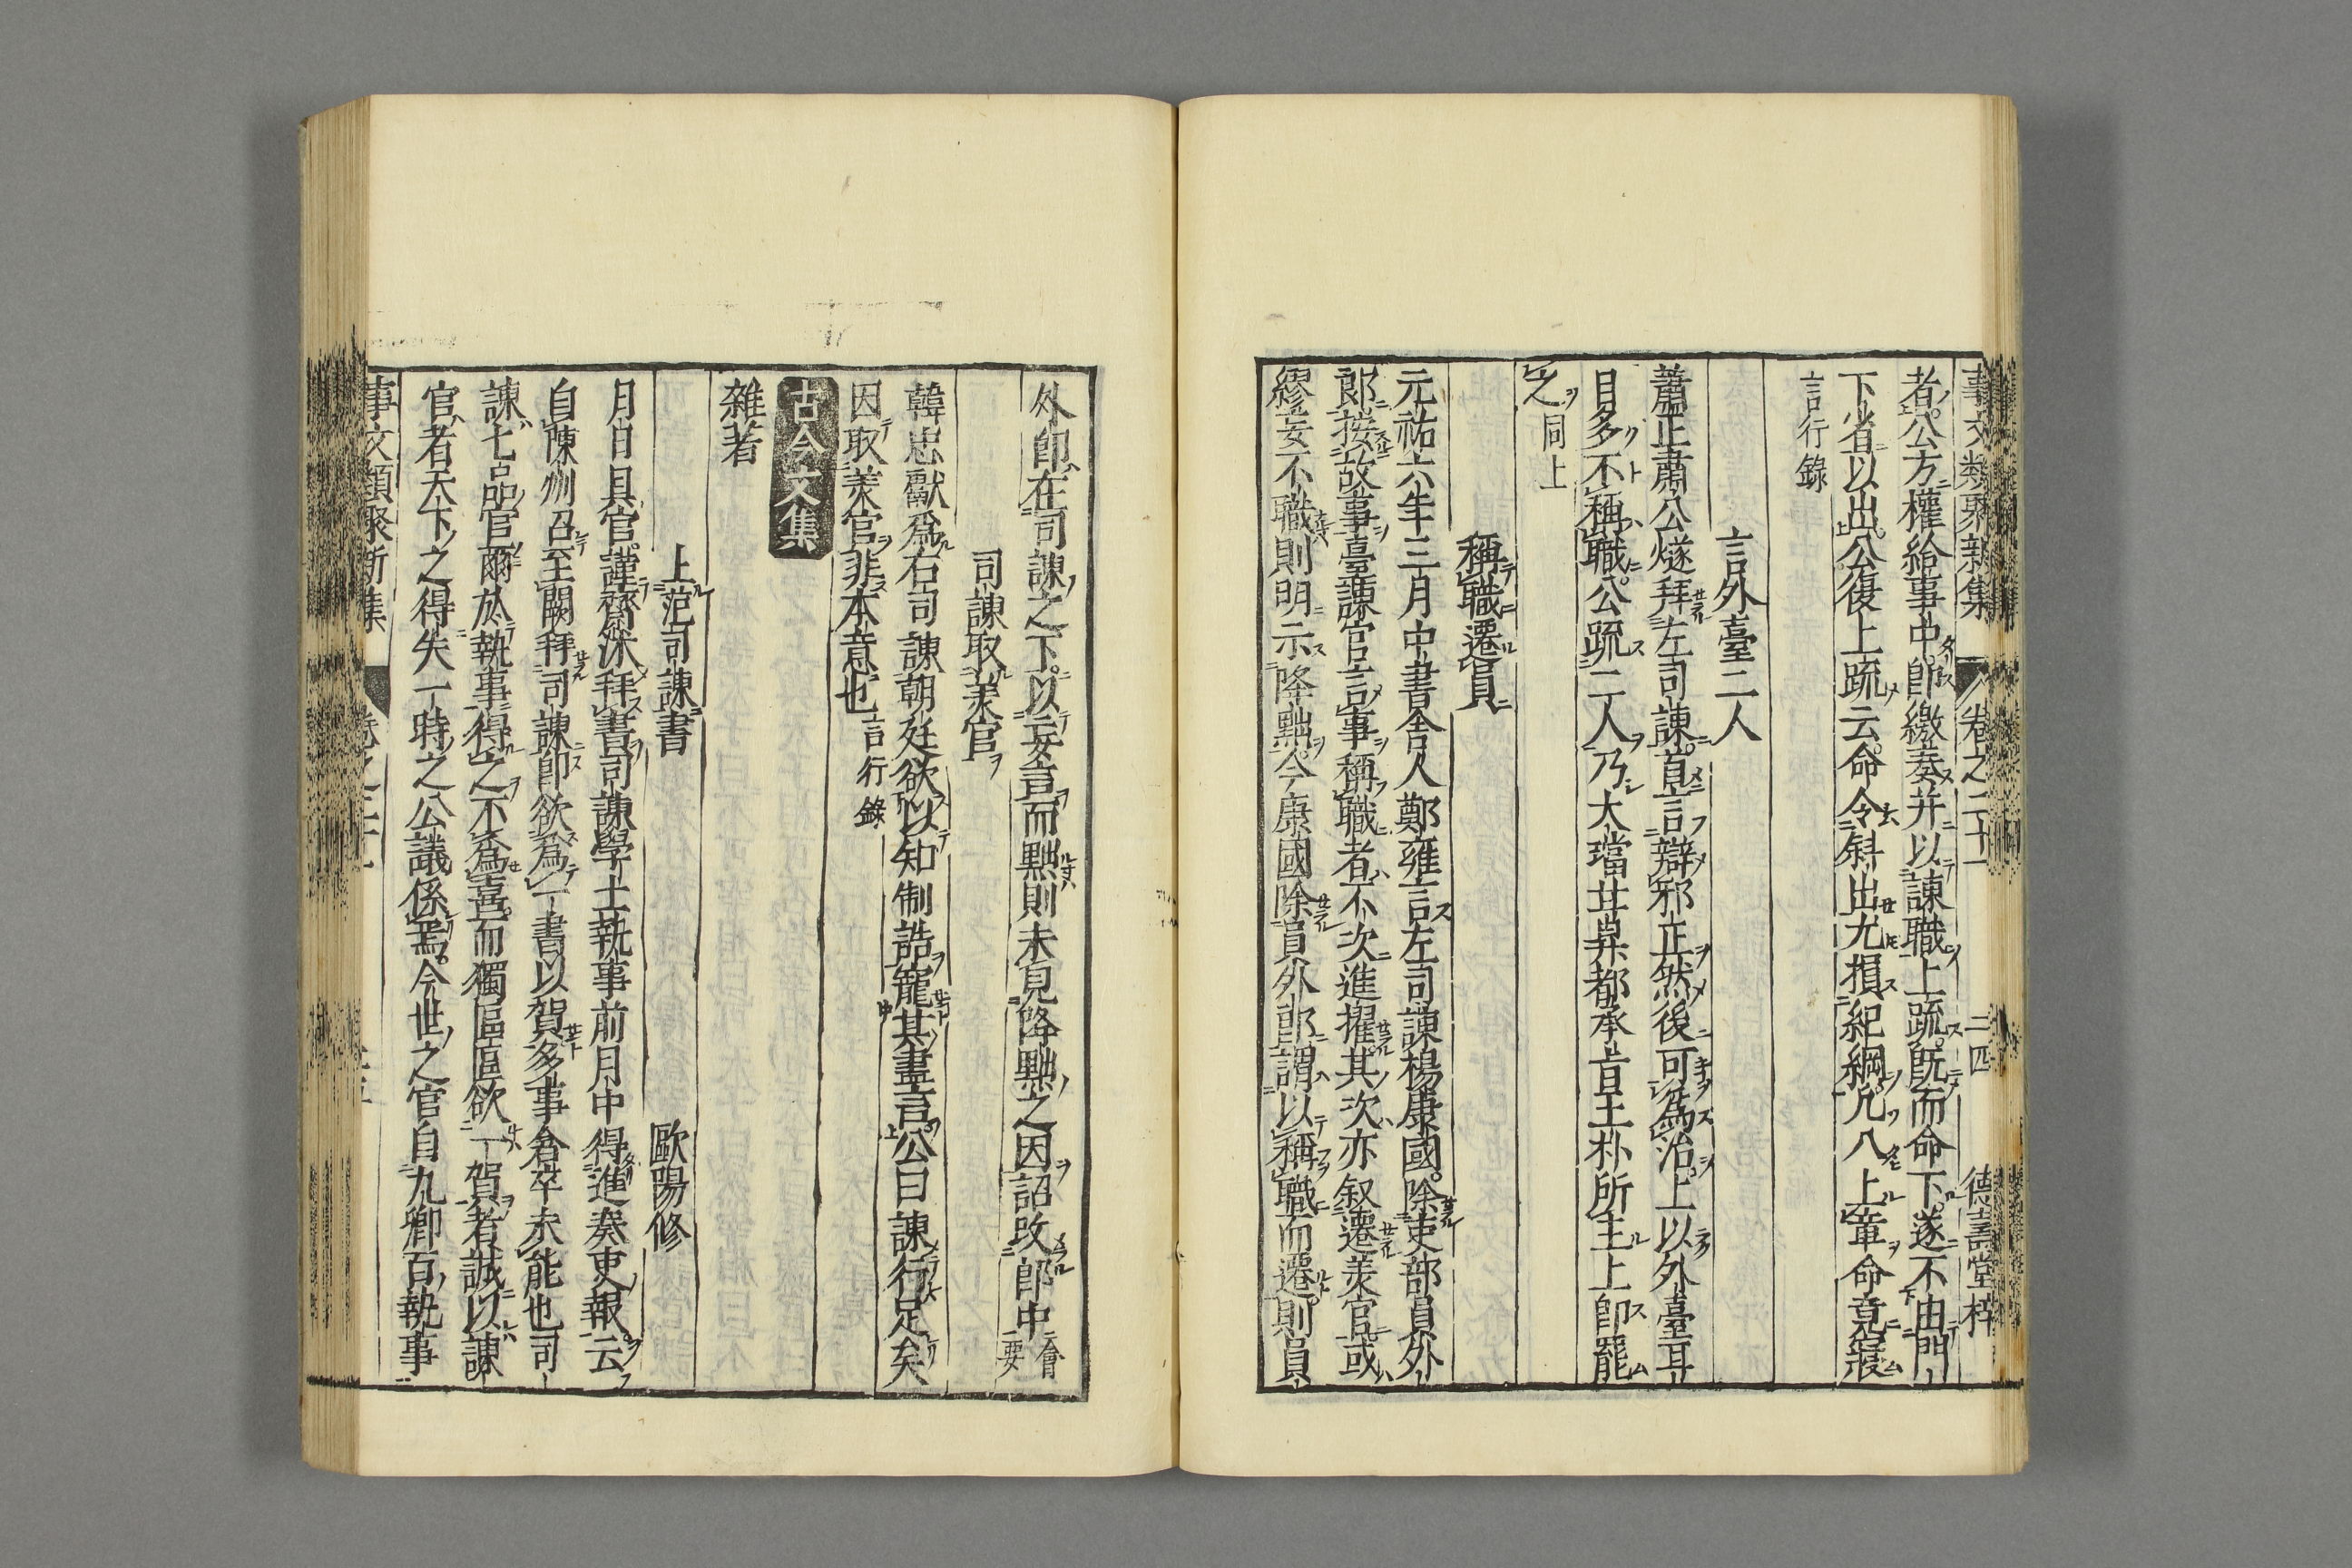 事文類聚新集 卷之二十一 二四 德壽堂梓
者公方權給事中卽繳奏并以諫職上疏旣而命下遂不由門
下省以出公復上疏云命令斜出尤損紀綱凡八上章命竟寢
言行錄
言外臺二人
蕭正肅公燧拜左司諫首言辯邪正然後可爲治上以外臺耳
目多不稱職公疏二人乃大璫甘昇都承旨王朴所主上卽罷
之同上
稱職遷員
元祐六年三月中書舍人鄭雍言左司諫楊康國除吏部員外
郎按故事臺諫官言事稱職者不次進擢其次亦叙遷美官或
繆妄不職則明示降黜今康國除員外郎謂以稱職而遷則員
外郎在司諫之下以妄言而黜則未見降黜之因詔改郎中會要
司諫取美官
韓忠獻爲右司諫朝廷欲以知制誥寵其盡言公曰諫行足矣
因取美官非本意也言行錄
古今文集
雜著
上范司諫書 歐陽修
月日具官謹齋沐拜書司諫學士執事前月中得進奏吏報云
自陳州召至闕拜司諫卽欲爲一書以賀多事倉卒未能也司
諫七品官爾於執事得之不爲喜而獨區區欲一賀者誠以諫
官者天下之得失一時之公議係焉今世之官自九卿百執事
事文類聚新集 卷之二十一